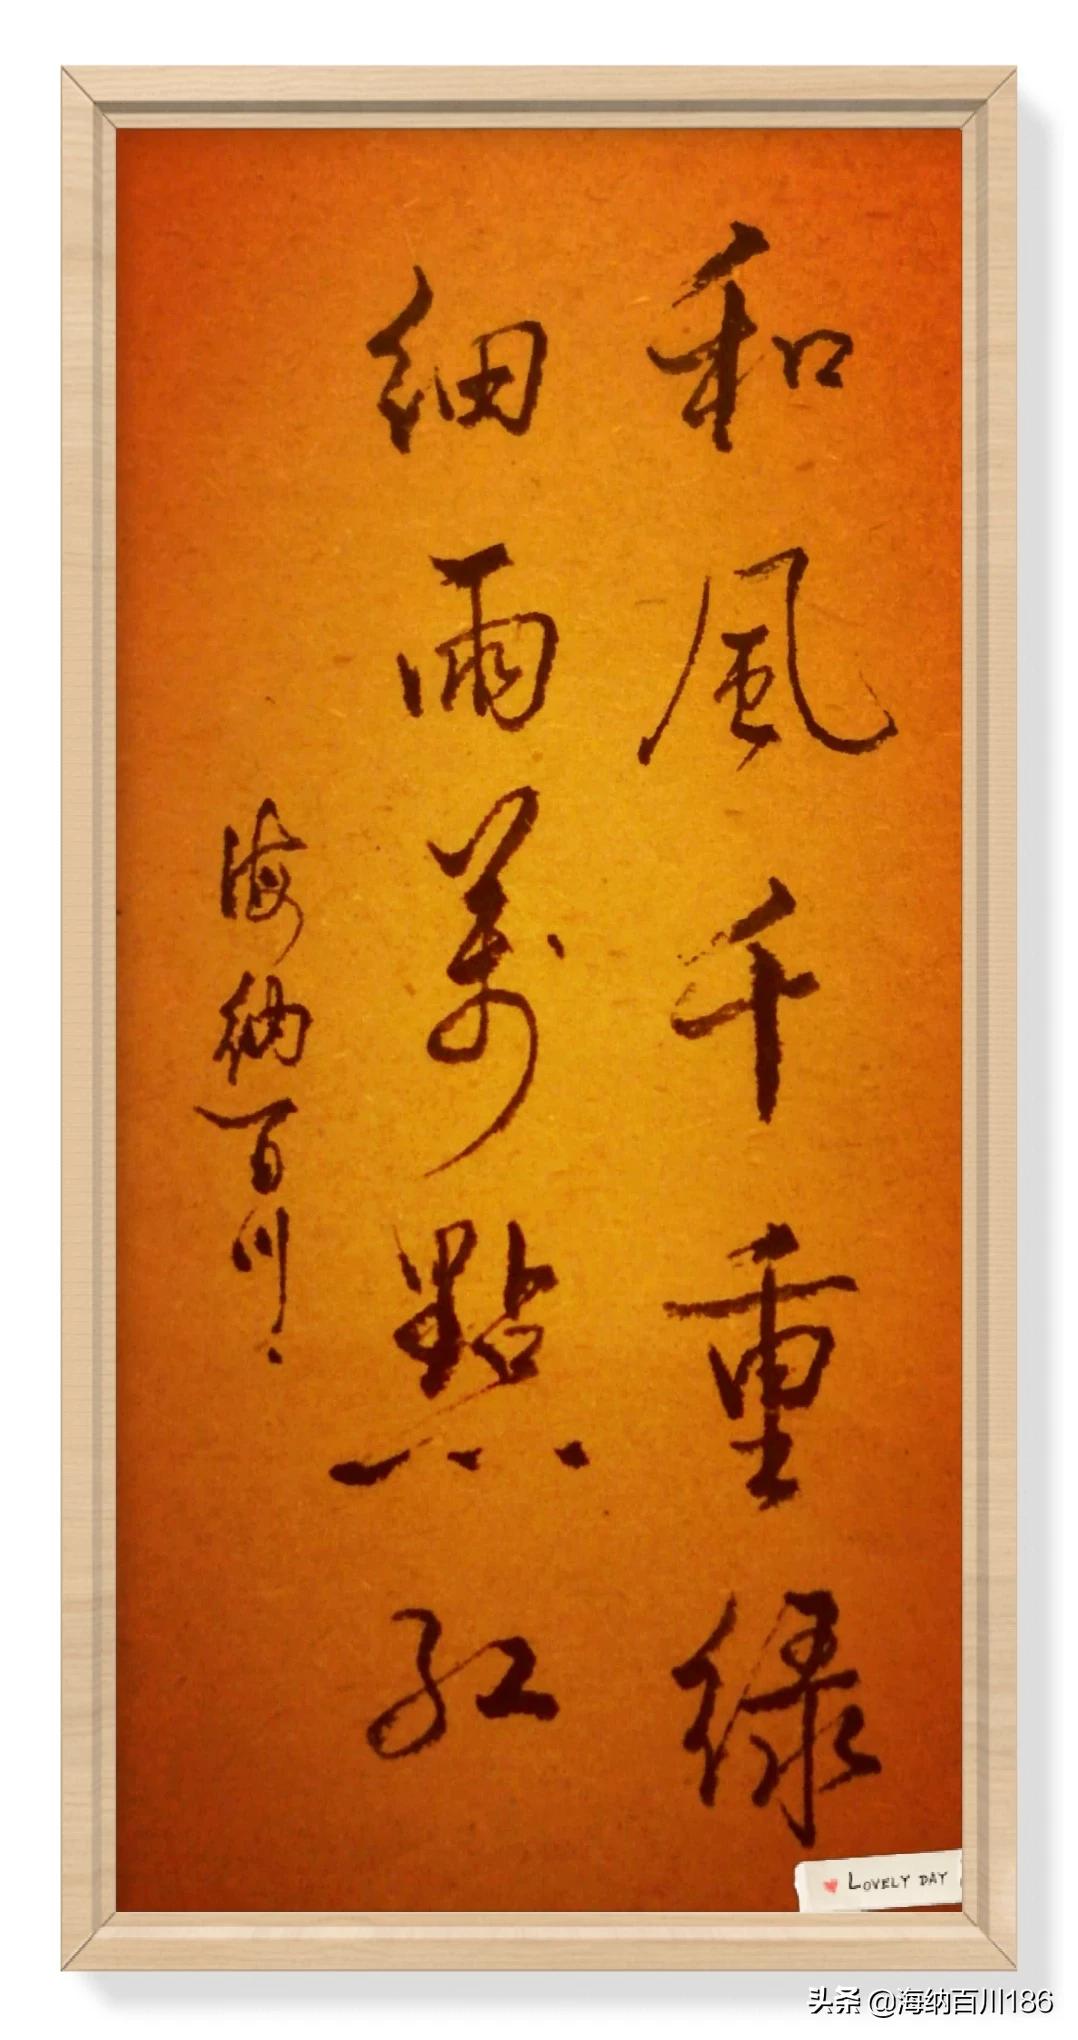 和風千重緑
細雨萬點紅
海納百川
LOVELY DAY
头条 @海纳百川186